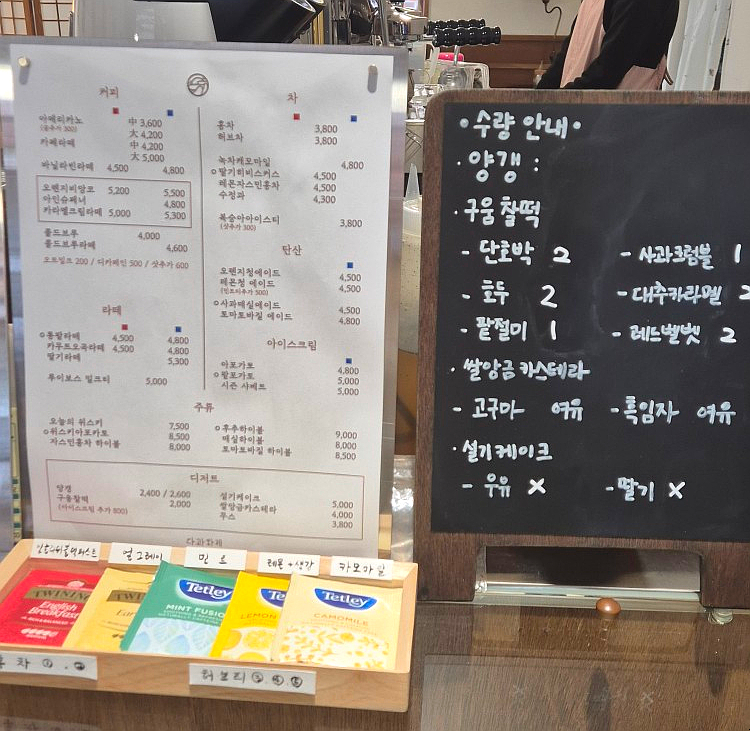 커피
아메리카노 中 3,600
(샷추가 300) 大 4,200
카페라떼 中 4,200
大 5,000
바닐라빈라떼 4,500 4,800
오렌지비앙코 5,200 5,500
아인슈페너 4,800
카라멜크림라떼 5,000 5,300
콜드브루 4,000
콜드브루라떼 4,600
오트밀크 200 / 디카페인 500 / 샷추가 600
라떼
통팥라떼 4,500 4,800
카무트오곡라떼 4,500 4,800
딸기라떼 5,300
루이보스 밀크티 5,000
차
홍차 3,800
허브차 3,800
녹차캐모마일 4,800
딸기히비스커스 4,500
레몬자스민홍차 4,500
수정과 4,300
복숭아아이스티 3,800
(샷추가 300)
탄산
오렌지청에이드 4,500
레몬청 에이드 4,500
(민트티추가 500)
사과매실에이드 4,500
토마토바질 에이드 4,800
아이스크림
아포가토 4,800
팥포가토 5,000
시즌 샤베트 5,000
주류
오늘의 위스키 7,500
위스키아포카토 8,500
자스민홍차 하이볼 8,000
후추하이볼 9,000
매실하이볼 8,000
토마토바질 하이볼 8,500
디저트
양갱 2,400 / 2,600
구움찰떡 2,000
(아이스크림 추가 800)
설기케이크 5,000
쌀앙금카스테라 4,000
무스 3,800
다과화제
얼그레이
민트
레몬+생강
카모마일
TWININGS
English
Breakfast
TWININGS
Earl
Tetley
MINT FUSION
LEMON
Tetley
CAMOMILE
홍차 ①.②
허브티 ③ ④ ⑤
•수량 안내•
·양갱:
·구움찰떡
- 단호박 2 - 사과크럼블 1
- 호두 2 - 대추카라멜 2
- 팥절미 1 - 레드벨벳 2
·쌀앙금카스테라
- 고구마 여유 - 흑임자 여유
·설기케이크
- 우유 X - 딸기 X